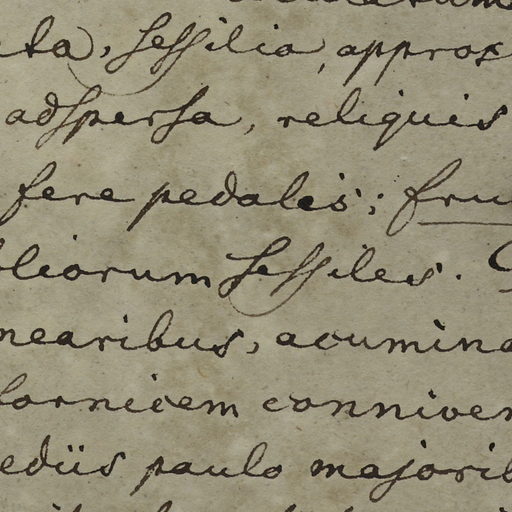 ta, sessilia, approx
adspersa, reliquis
fere pedalis; fru
liorum sessiles.
nearibus, acumina
fornicem conniven
ediis paulo majorib